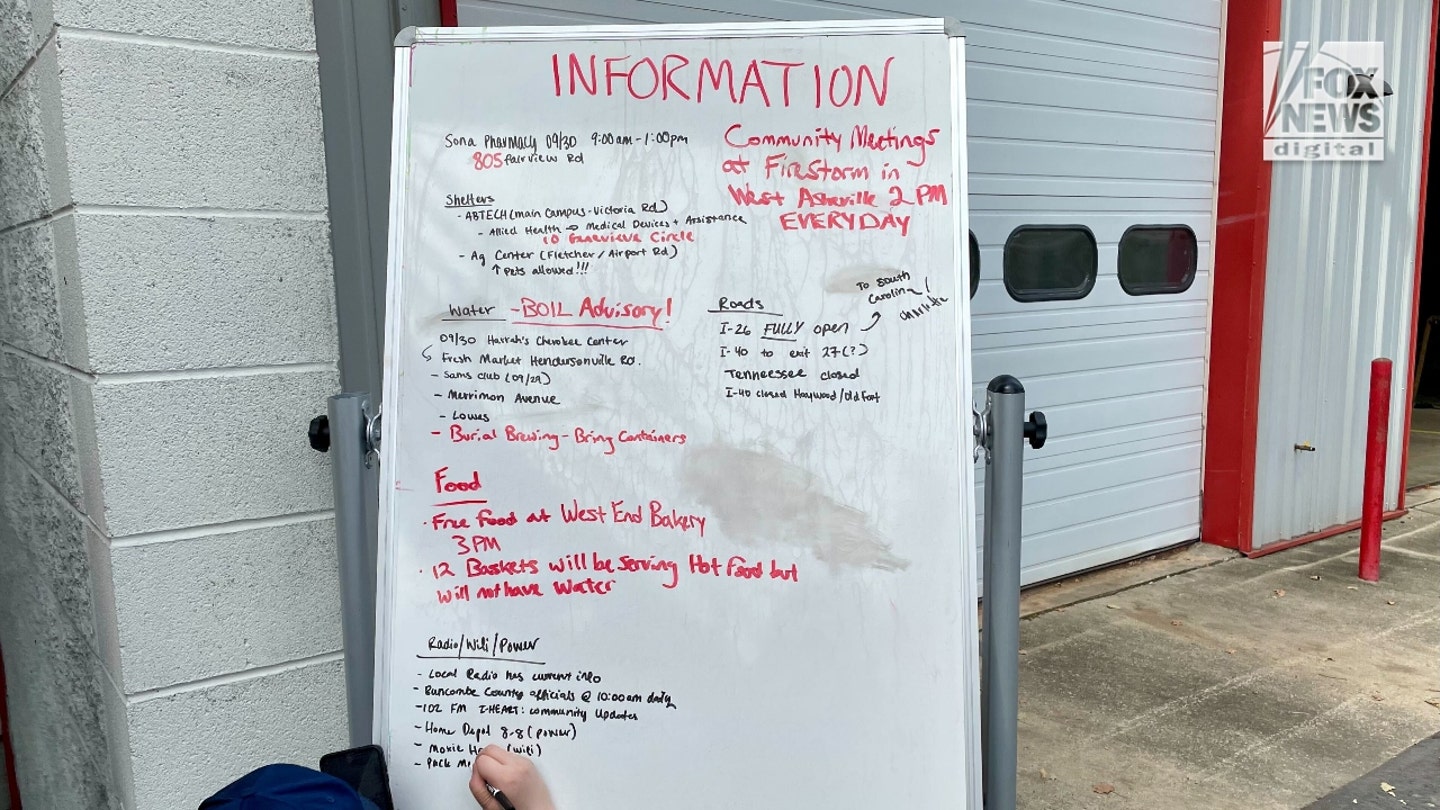 INFORMATION
Sona Pharmacy 09/30 9:00am-1:00pm
805 Fairview Rd
Community Meetings
at Firestorm in
West Asheville 2 PM
EVERYDAY
Shelters
- ABTECH (main campus - Victoria Rd)
- Allied Health → Medical Devices + Assistance
10 Genevieve Circle
- Ag Center (Fletcher / Airport Rd)
↑ Pets allowed!!!
Water - BOIL Advisory!
09/30 Harrah's Cherokee Center
Fresh Market Hendersonville Rd.
- Sams Club (09/29)
- Merrimon Avenue
- Lowes
- Burial Brewing - Bring Containers
Roads
To South
Carolina /
Charlotte
I-26 FULLY open
I-40 to exit 27(?)
Tenneessee closed
I-40 closed Haywood/Old Fort
Food
· Free food at West End Bakery
3PM
· 12 Baskets will be serving Hot Food but
will not have Water
Radio/Wifi/Power
- Local Radio has current info
- Buncombe County officials @ 10:00am daily
- 102 FM I-HEART: community updates
- Home Depot 8-8 (power)
- Moxie (wifi)
- Pack
FOX
NEWS
digital